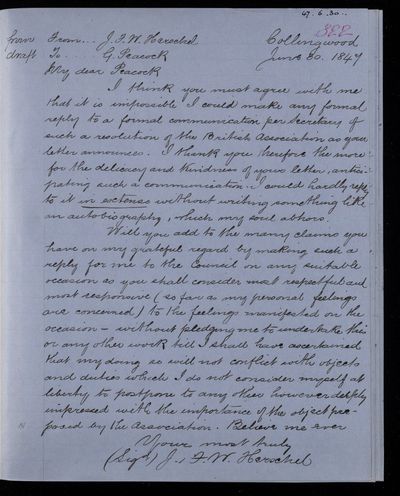 47.6.30..
322
from From... J.F.W. Herschel Collingwood
draft To.... G. Peacock June 30. 1847
My dear Peacock
I think you must agree with me
that it is impossible I could make any formal
reply to a formal communication per Secretary of
such a resolution of the British Association as your
letter announces. I thank you therefore the more
for the delicacy and kindness of your letter, antici-
pating such a communication. I could hardly reply
to it in extenso without writing something like
an autobiography, which my soul abhors.
Will you add to the many claims you
have on my grateful regard by making such a
reply for me to the Council on any suitable
occasion as you shall consider most respectful and
most responsive (so far as my personal feelings
are concerned) to the feelings manifested on the
occasion - without pledging me to undertake this
or any other work till I shall have ascertained
that my doing so will not conflict with objects
and duties which I do not consider myself at
liberty to postpone to any other however deeply
impressed with the importance of the object pro-
posed by the Association. Believe me ever
Yours most truly
(Signd) J., F.W. Herschel